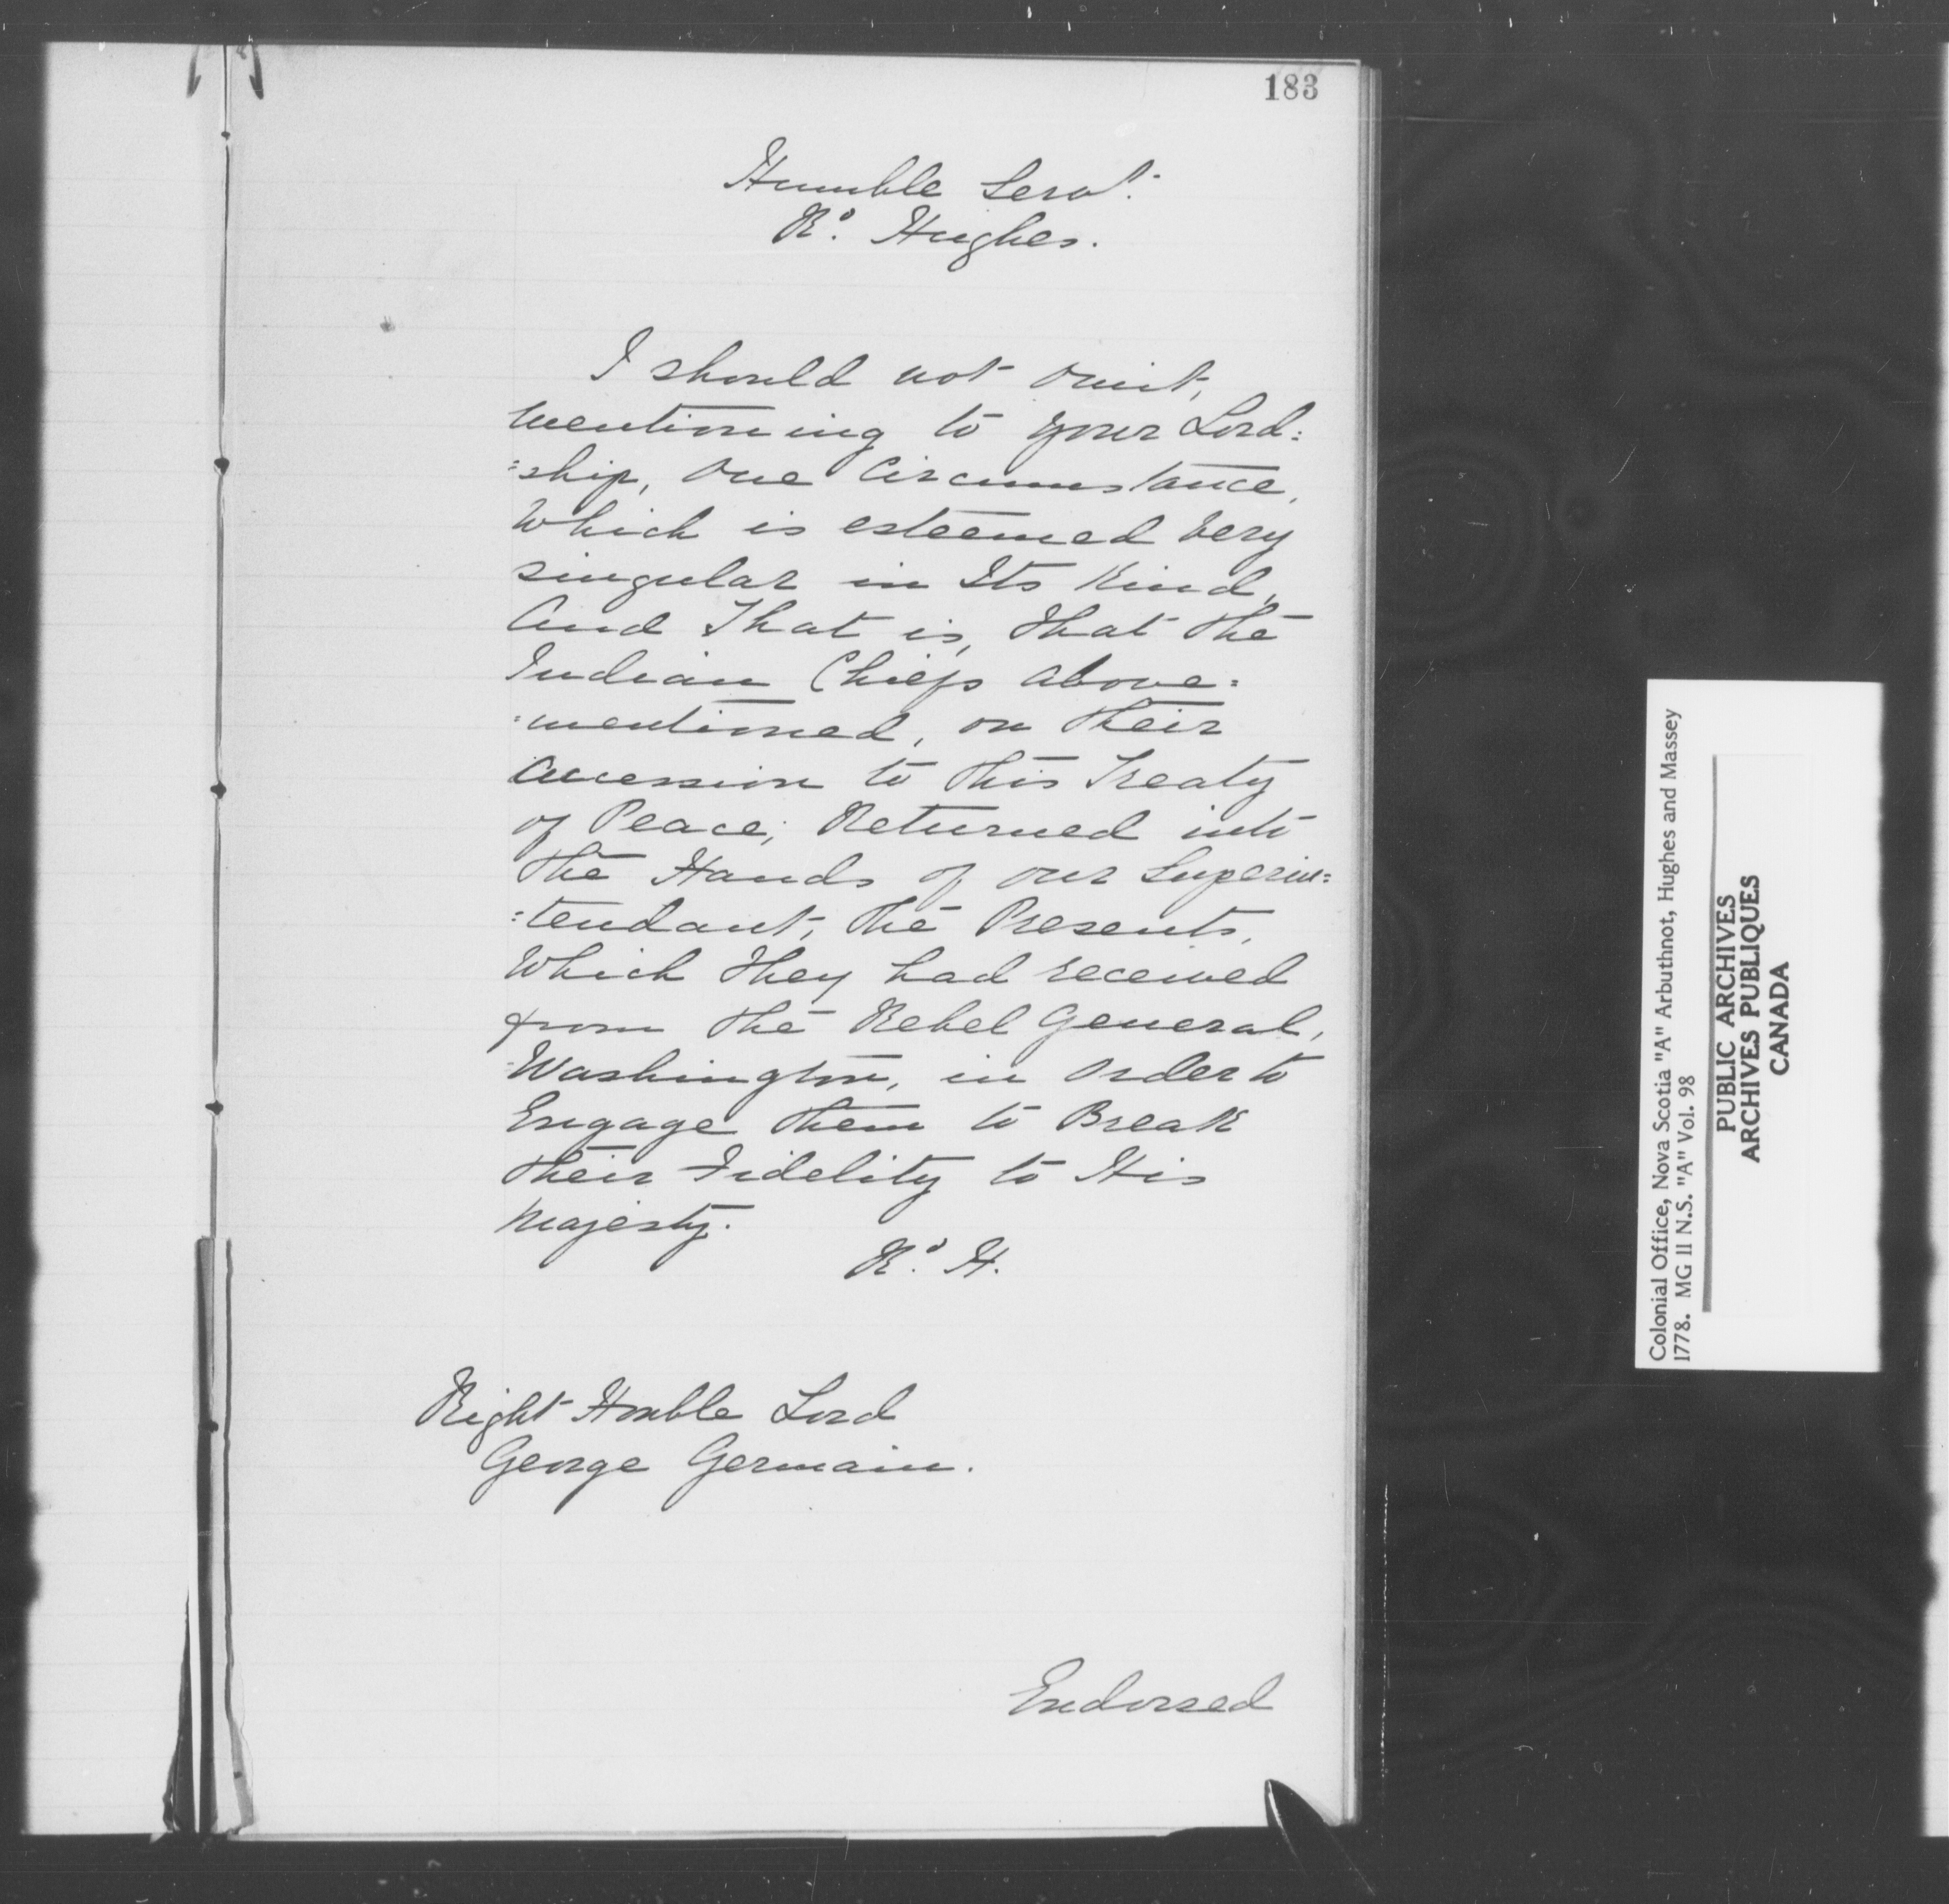 183
Humble Servt.
Rd. Hughes.
I should not omit,
mentioning to your Lord=
=ship, One Circumstance,
Which is esteemed Very
singular in Its Kind,
And That is, that the
Indian Chiefs above=
=mentioned, on their
Accession to this Treaty
of Peace; Returned into
the Hands of our Superin=
=tendant, the Presents,
Which they had received
from the Rebel General,
Washington, in Order to
Engage them to Break
their Fidelity to His
Majesty.
Rd. H.
Right Honble Lord
George Germain.
Endorsed
Colonial Office, Nova Scotia "A" Arbuthnot, Hughes and Massey
1778. MG 11 N.S. "A" Vol. 98
PUBLIC ARCHIVES
ARCHIVES PUBLIQUES
CANADA